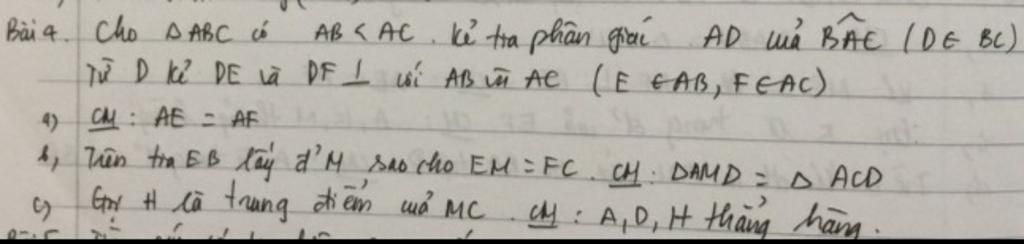 Bài 4. Cho ΔABC có AB < AC. Kẻ tia phân giác AD của BÂC (D∈ BC)
Từ D kẻ DE và DF ⊥ với AB và AC (E ∈AB, F∈AC)
a) CM : AE = AF
b, Trên tia EB lấy đ' M sao cho EM = FC. CM : ΔAMD = Δ ACD
c) Gọi H là trung điểm của MC. CM : A, D, H thẳng hàng.